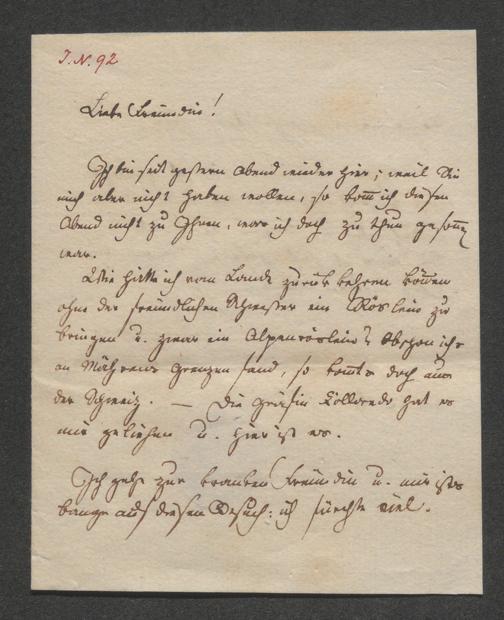 I. N. 92
Liebe Freundin!
Ich bin seit gestern Abend wieder hier; weil Sie
mich aber nicht haben wollen, so kom̅ ich diesen
Abend nicht zu Ihnen, was ich doch zu thun gesonnen
war.
Wie hätte ich vom Lande zurük kehren können
ohne der freundlichen Schwester ein Röslein zu
bringen u. zwar ein Alpenröslein? Obschon ichs
an Mährens Grenzen fand, so kom̅ts doch aus
der Schweiz. — Die Gräfin Colloredo hat es
mir geliehen u. hier ist es.
Ich gehe zur kranken Freundin u. mir ists
bange auf diesen Besuch: ich fürchte viel.